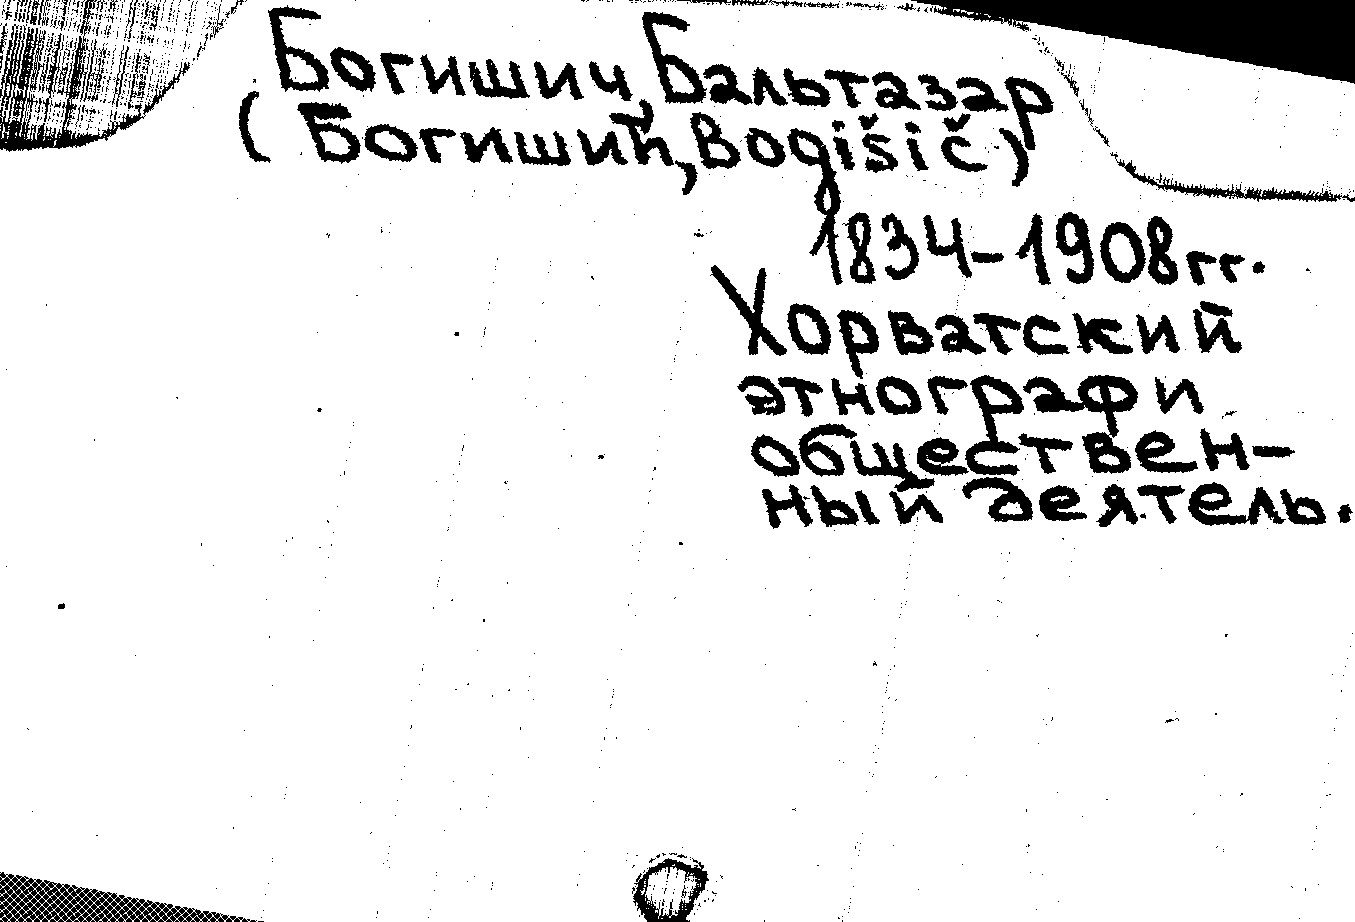 Богишич, Бальтазар
(Богишић, Bogišič)
1834-1908гг.
Хорватский
этнограф и
обществен-
ный деятель.